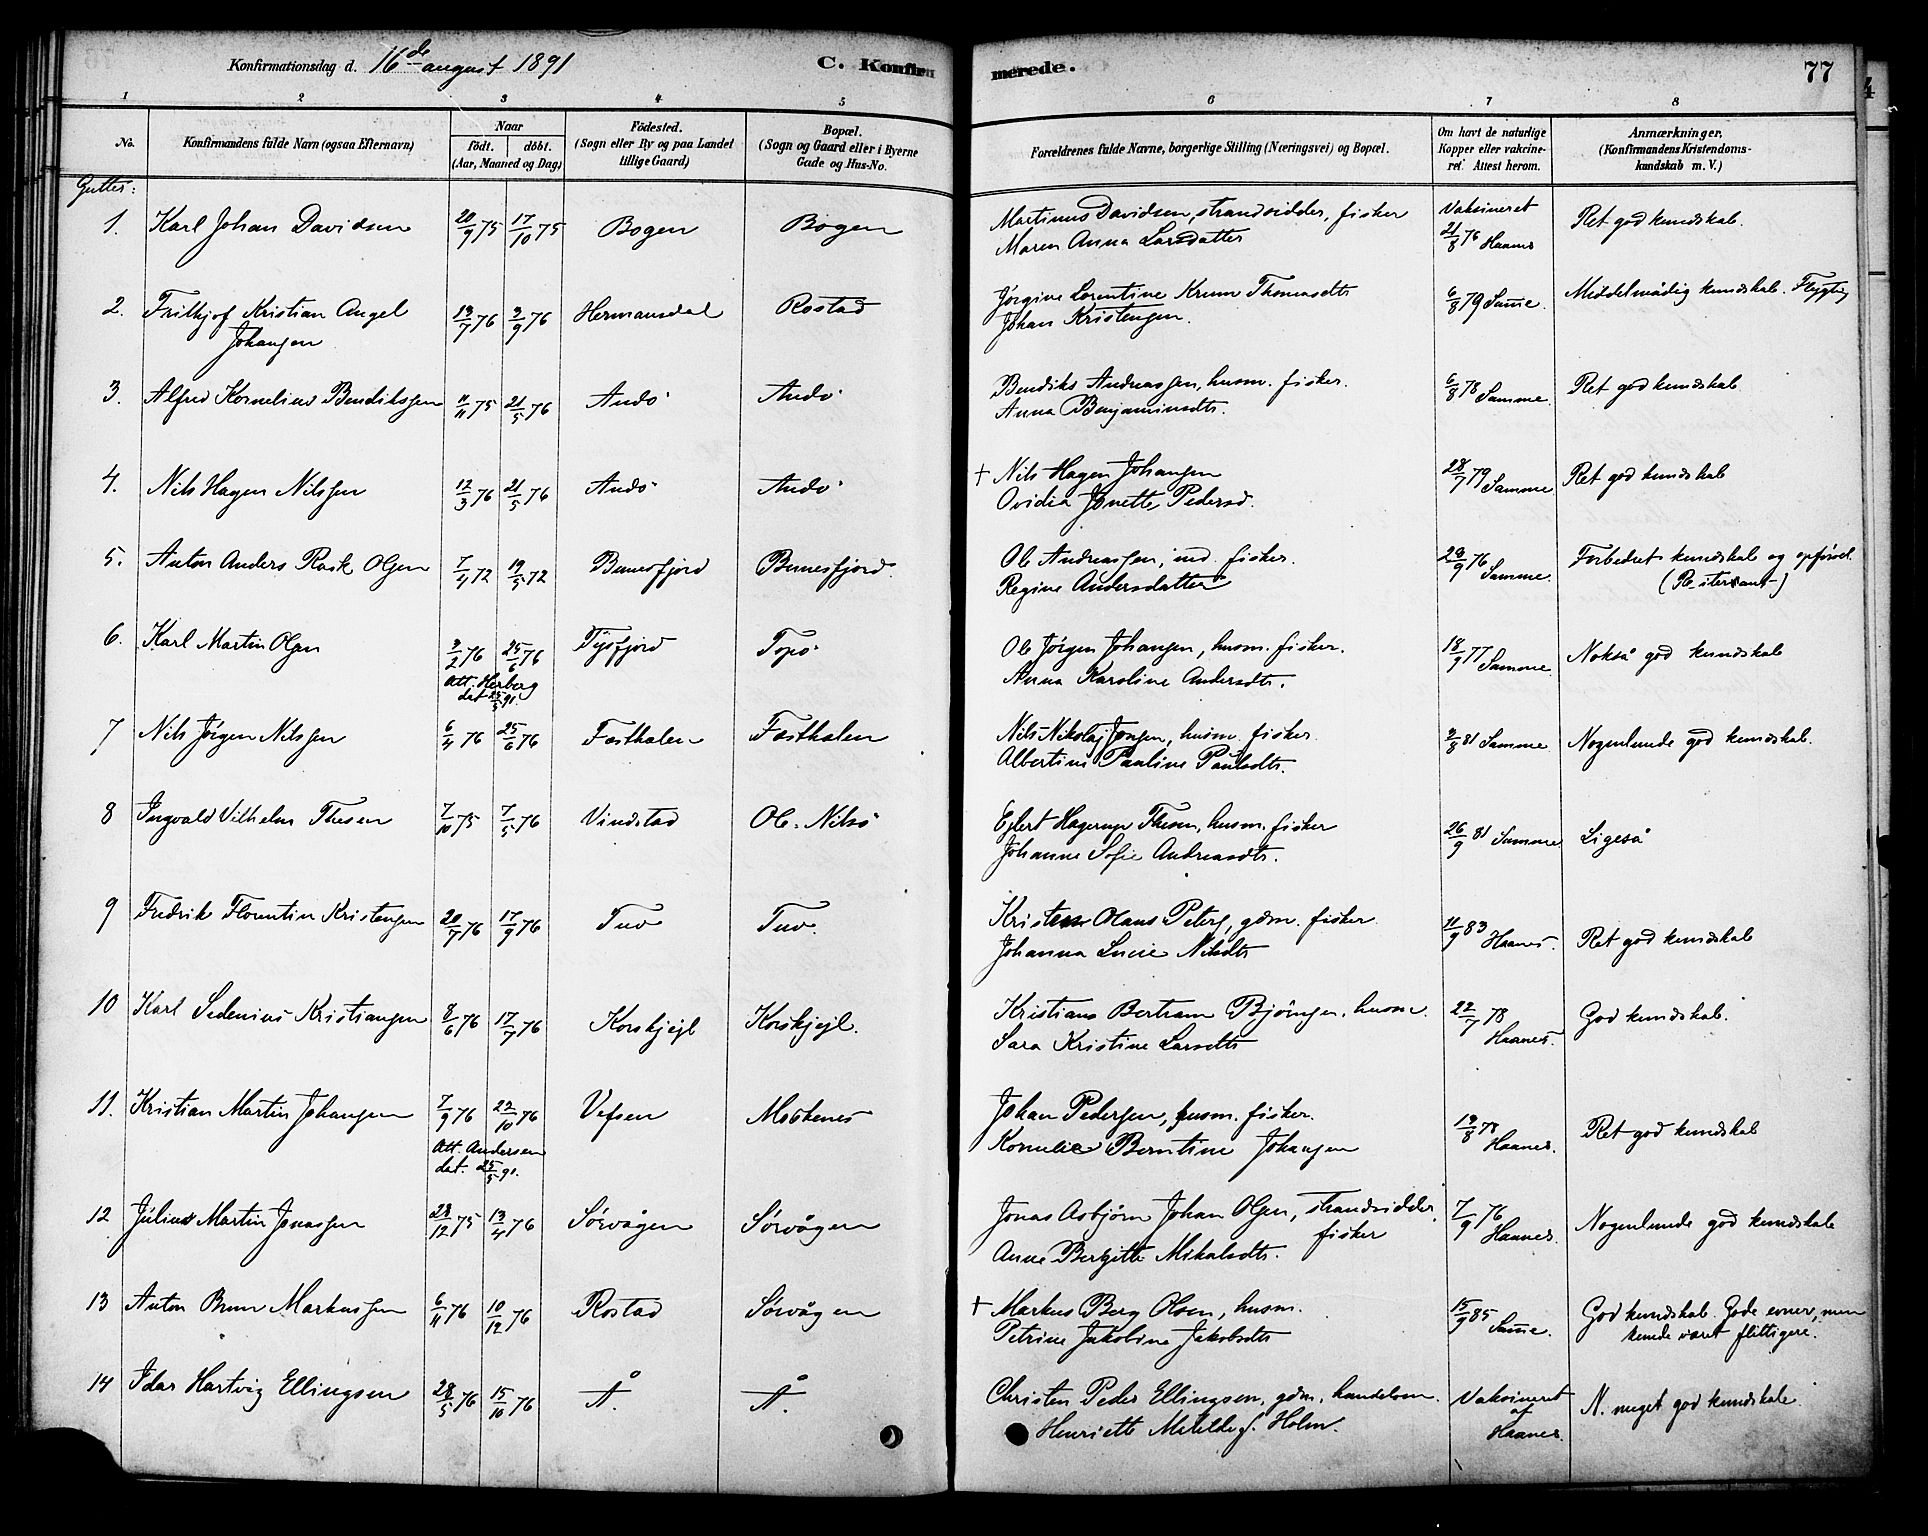 Konfirmationsdag d. 16de august 1891 C. Konfirmerede. 77
1 2 3 4 5 6 7 8
No. Konfirmandens fulde Navn (ogsaa Efternavn) Naar født. døbt. (Aar, Maaned og Dag) Fødested. (Sogn eller By og paa Landet tillige Gaard) Bopæl. (Sogn og Gaard eller i Byerne Gade og Hus-No. Forældrenes fulde Navne, borgerlige Stilling (Næringsvei) og Bopæl. Om havt de naturlige Kopper eller vakcineret. Attest herom. Anmærkninger. (Konfirmandens Kristendomskundskab m. V.)
Gutter:
1. Karl Johan Davidsen 20/9 75 17/10 75 Bogen Bogen Martinus Davidsen, strandsidder, fisker Vaksineret Ret god kundskab.
Maren Anna Larsdatter 21/8 76 Haanes
2. Frithjof Kristian Angel 13/7 76 3/9 76 Hermansdal Rostad Jørgine Lorentine Krum Thomasdtr 6/8 79 Samme. Middelmådig kundskab. Flygtig
Johansen Johan Kristensen.
3. Alfred Kornelius Bendiksen 11/11 75 21/5 76 Andø Andø Bendiks Andreassen, husm. fisker. 6/8 78 Samme. Ret god kundskab
Anna Benjaminsdtr.
4. Nils Hagen Nilssen 12/3 76 21/5 76 Andø Andø † Nils Hagen Johansen 28/7 79 Samme Ret god kundskab
Ovidia Jonette Pedersd.
5. Anton Anders Rask Olsen 7/4 72 19/5 72 Bunesfjord Bunesfjord. Ole Andreassen, ind. fisker. 29/9 76 Samme. Forbedret kundskab og opførsel.
Regine Andersdatter (Resterant)
6. Karl Martin Olsen 3/2 76 25/6 76 Tysfjord Topø Ole Jørgen Johansen, husm. fisker. 18/9 77 Samme Nokså god kundskab
Att. Herberg Anna Karoline Andersdtr.
dat 25/5 91.
7 Nils Jørgen Nilssen 6/4 76 25/6 76 Festhalen Festhalen Nils Nikolaj Jensen, husm. fisker. 3/8 81 Samme Nogenlunde god kundskab.
Albertine Pauline Paulsdtr.
8 Ingvald Vilhelm Thesen 7/10 75 7/5 76 Vindstad Ol. Nilsø Ejlert Hagerup Thesen, husm. fisker 26/9 81 Samme Ligeså
Johanne Sofie Andreasdtr.
9 Fredrik Florentin Kristensen 20/7 76 17/9 76 Tuv Tuv. Kristen Olaus Peters, gdm. fisker 11/9 83 Haanes. Ret god kundskab
Johanna Lucie Nilsdtr
10 Karl Sedenius Kristiansen 8/6 76 17/7 76 Korshjejl Korshjejl. Kristians Bertram Bjørnsen, husm. 22/7 78 Haanes. God kundskab.
Sara Kristine Larsdtr
11. Kristian Martin Johansen 7/9 76 22/10 76 Vefsen Moskenes Johan Pedersen, husm. fisker. 19/8 78 Haanes. Ret god kundskab
Att. Andersen Kornelie Berntine Johansen
dat. 25/5 91.
12 Julius Martin Jonassen 28/12 75 13/4 76 Sørvågen Sørvågen Jonas Asbjørn Johan Olsen, strandsidder, fisker 7/9 76 Haanes. Nogenlunde god kundskab
Anne Bergitte Mikalsdtr.
13 Anton Brun Markussen 6/11 76 10/12 76 Rostad Sørvågen † Markus Berg Olsen, husm. 15/9 85 Samme. God kundskab. Gode evner, men
Petrine Jakobine Jakobsdtr kunde været flittigere.
14 Idar Hartvig Ellingsen 28/5 76 15/10 76 Å. Å. Christen Peder Ellingsen, gdm, handelsm. Vaksineret af Haanes. N. meget god kundskab.
Henriette Matilde f. Holm.